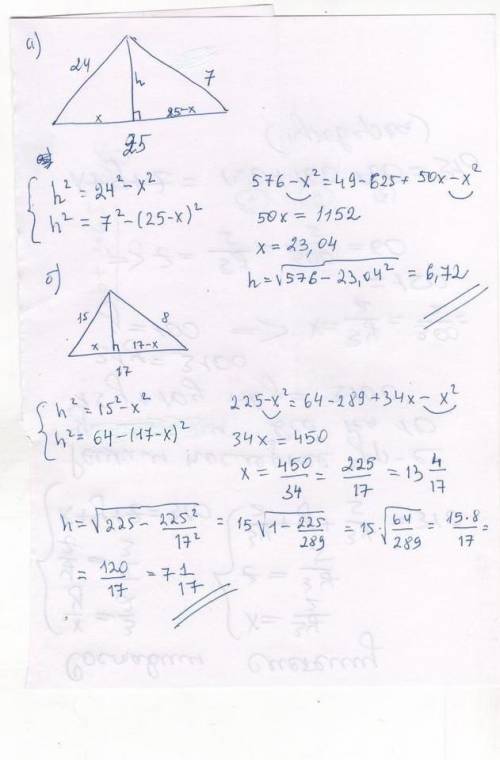 а)
24
h
7
x
25-x
25
h² = 24² - x²
h² = 7² - (25-x)²
576 - x² = 49 - 625 + 50x - x²
50x = 1152
x = 23,04
h = √(576 - 23,04²) = 6,72
б)
15
8
x
17-x
17
h² = 15² - x²
h² = 64 - (17-x)²
225 - x² = 64 - 289 + 34x - x²
34x = 450
x = 450/34 = 225/17 = 13 4/17
h = √(225 - 225²/17²) = 15√(1 - 225/289) = 15·√(64/289) = 15·8/17 =
= 120/17 = 7 1/17